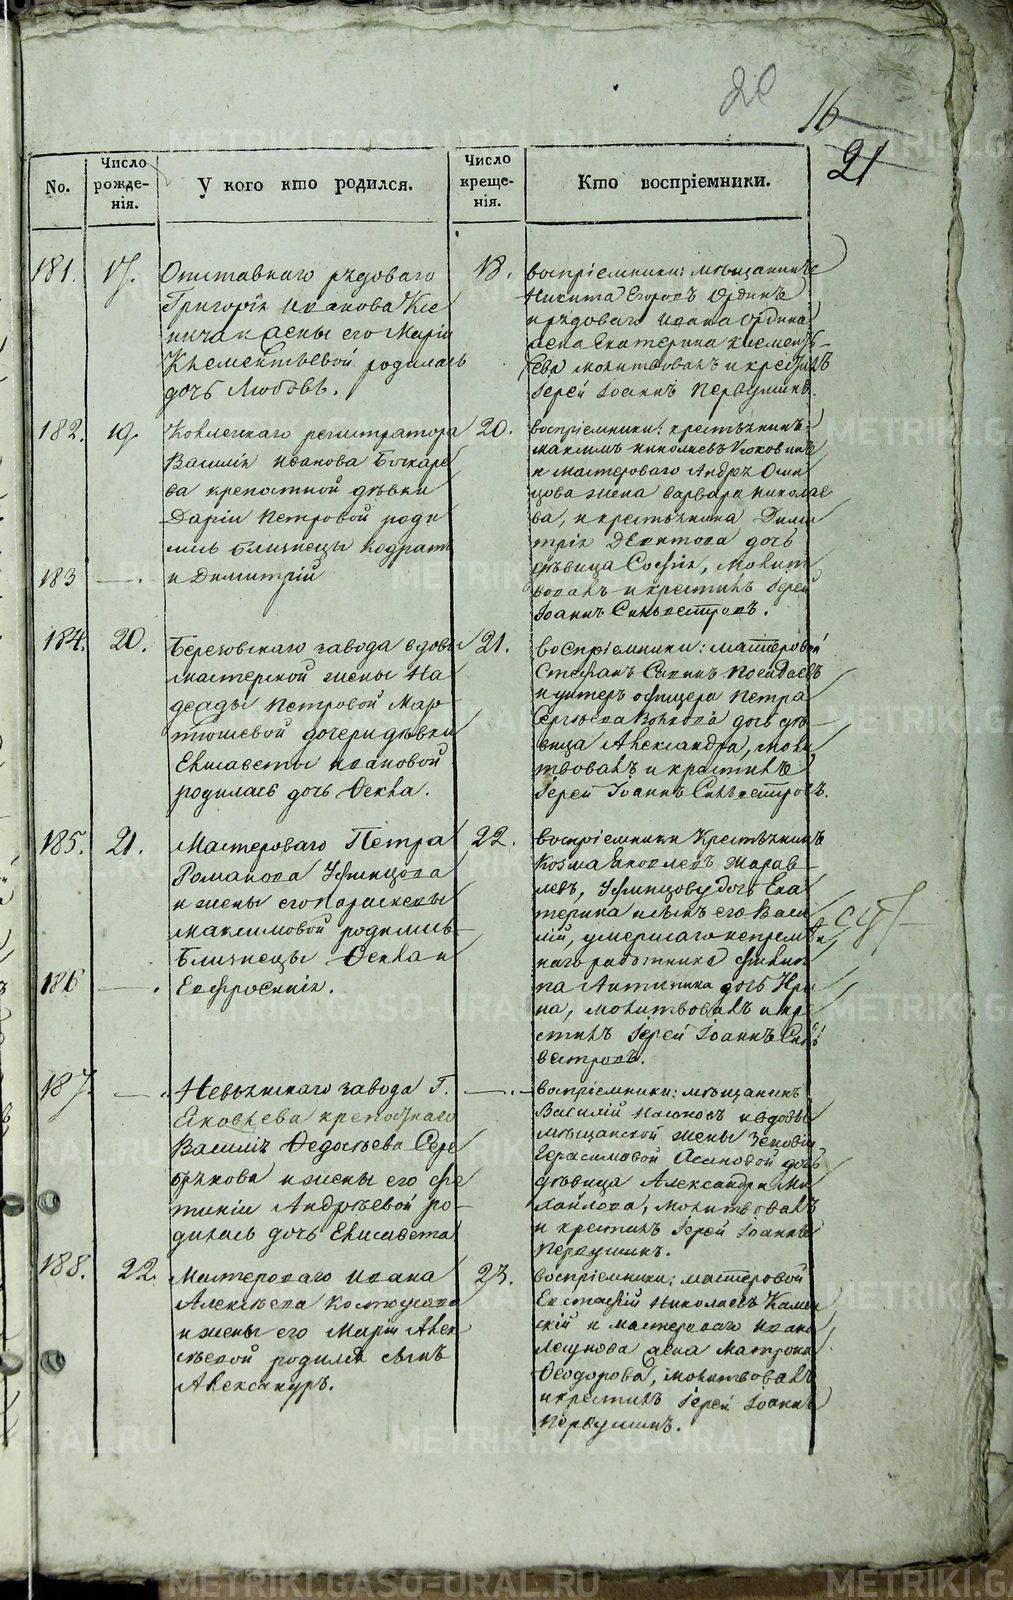 20
16
21
No.
Число рожденія.
У кого кто родился.
Число крещенія.
Кто воспріемники.
181.
17.
Отставнаго рядоваго
Григорія Иванова
жены его Маріи
Клементьевой родилась
дочь Любовь.
18.
воспріемники: мѣщанинъ
Никита Егоровъ
и рядоваго Ивана
жена Екатерина Клементь-
ева молитвовалъ и крестилъ
Іерей Іоаннъ Первушинъ.
182.
19.
Коллежскаго регистратора
Василія Иванова Бочкаре
ва крепостной дѣвки
Даріи Петровой роди
лись близнецы Кодратъ
183
и Димитрій
20.
воспріемники: крестьянинъ
Максимъ Николаевъ
и мастероваго Андрея
цова жена Варвара Николае
ва, и крестьянина Дими
трія дочь
дѣвица Софія, молит
вовалъ и крестилъ Іерей
Іоаннъ Сильвестровъ.
184.
20.
Березовскаго завода вдовы
мастерской жены На
дежды Петровой Мар
тюшевой дочери дѣвки
Елисаветы Ивановой
родилась дочь Ѳекла.
21.
воспріемники: мастеровой
Стефанъ Посадаевъ
и унтеръ офицера Петра
Сергѣева Волкова дочь дѣ-
вица Александра, моли
твовалъ и крестилъ
Іерей Іоаннъ Сильвестровъ.
185.
21.
Мастероваго Петра
Романова Уфинцова
и жены его Параскевы
Максимовой родились
близнецы Ѳекла и
186
Евфросинія.
22.
воспріемники Крестьянинъ
Козма Яковлевъ Журав-
левъ, Уфинцову дочь Ека
терина и сынъ его Васи
лій, умершаго непремѣн
наго работника Филип
па Антипина дочь Ири
на, молитвовалъ и кре
стилъ Іерей Іоаннъ Силь
вестровъ.
187.
Невьянскаго завода Г.
Яковлева крепостнаго
Василія Ѳедосѣева Сере
брякова и жены его Фе
тиніи Андреевой ро-
дилась дочь Елисавета
воспріемники: мѣщанинъ
Василій Насоновъ и вдовы
мѣщанской жены Зеновіи
Герасимовой дочь
дѣвица Александра Ми
хайлова, молитвовалъ
и крестилъ Іерей Іоаннъ
Первушинъ.
188.
22.
Мастероваго Ивана
Алексѣева Костоусова
и жены его Маріи Алек
сѣевой родился сынъ
Александръ.
23.
воспріемники: мастеровой
Евстафій Николаевъ Камен
скій и мастероваго Ивана
жена Матрона
Ѳеодорова, молитвовалъ
и крестилъ Іерей Іоаннъ
Первушинъ.
METRIKI.GASO-URAL.RU